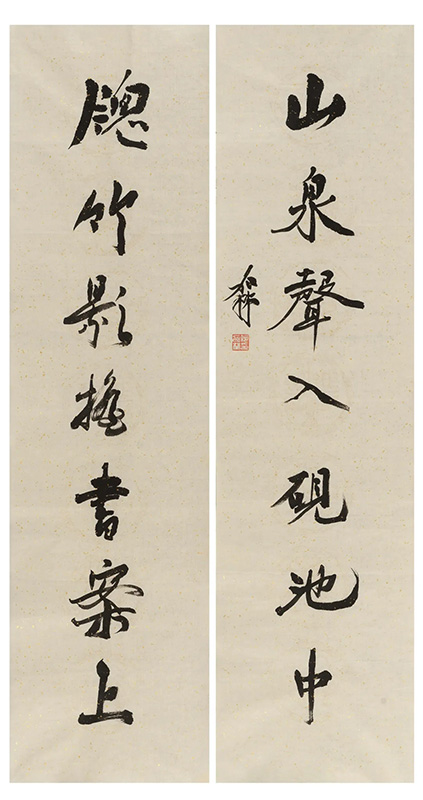 牕竹影搖書案上
山泉聲入硯池中